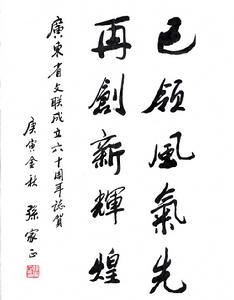 已領風氣先
再創新輝煌
廣東省文联成立六十周年誌賀
庚寅金秋 孫家正